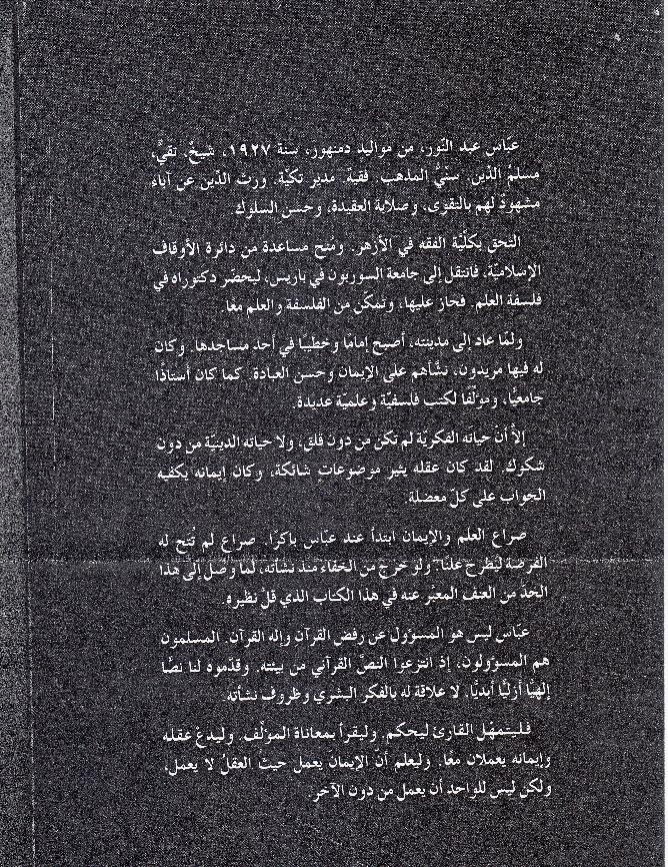 عبّاس عبد النّور، من مواليد دمنهور، سنة ١٩٢٧، شيخٌ. تقيٌّ،
مسلمُ الدّين. سنّيُّ المذهب. فقيهٌ. مدير تكيّة. ورث الدّين عن آباء
مشهودٌ لهم بالتقوى، وصلابة العقيدة، وحسن السلوك.
التحق بكلّيّة الفقه في الأزهر. ومُنح مساعدة من دائرة الأوقاف
الإسلاميّة، فانتقل إلى جامعة السوربون في باريس، ليحضّر دكتوراه في
فلسفة العلم. فحاز عليها، وتمكّن من الفلسفة والعلم معًا.
ولمّا عاد إلى مدينته، أصبح إمامًا وخطيبًا في أحد مساجدها. وكان
له فيها مريدون، نشّأهم على الإيمان وحسن العبادة. كما كان أستاذًا
جامعيًّا، ومؤلّفًا لكتب فلسفيّة وعلميّة عديدة.
إلاّ أنّ حياته الفكريّة لم تكن من دون قلق، ولا حياته الدينيّة من دون
شكوك. لقد كان عقله يثير موضوعاتٍ شائكة، وكان إيمانه يكفيه
الجواب على كلّ معضلة.
صراع العلم والإيمان ابتدأ عند عبّاس باكرًا. صراع لم تُتح له
الفرصة ليُطرح علنًا. ولو خرج من الخفاء منذ نشأته، لما وصل إلى هذا
الحدّ من العنف المعبّر عنه في هذا الكتاب الذي قلّ نظيره.
عبّاس ليس هو المسؤول عن رفض القرآن وإله القرآن. المسلمون
هم المسؤولون، إذ انتزعوا النصّ القرآني من بيئته. وقدّموه لنا نصًّا
إلهيًّا أزليًّا أبديًّا، لا علاقة له بالفكر البشري وظروف نشأته.
فليتمهّل القارئ ليحكم. وليقرأ بمعاناة المؤلّف. وليدعْ عقله
وإيمانه يعملان معًا. وليعلم أن الإيمان يعمل حيث العقلُ لا يعمل،
ولكن ليس للواحد أن يعمل من دون الآخر.